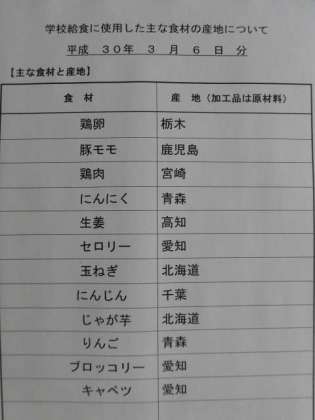 学校給食に使用した主な食材の産地について
平成 30年 3 月 6 日 分
【主な食材と産地】
食 材 産 地（加工品は原材料）
鶏卵 栃木
豚モモ 鹿児島
鶏肉 宮崎
にんにく 青森
生姜 高知
セロリー 愛知
玉ねぎ 北海道
にんじん 千葉
じゃが芋 北海道
りんご 青森
ブロッコリー 愛知
キャベツ 愛知